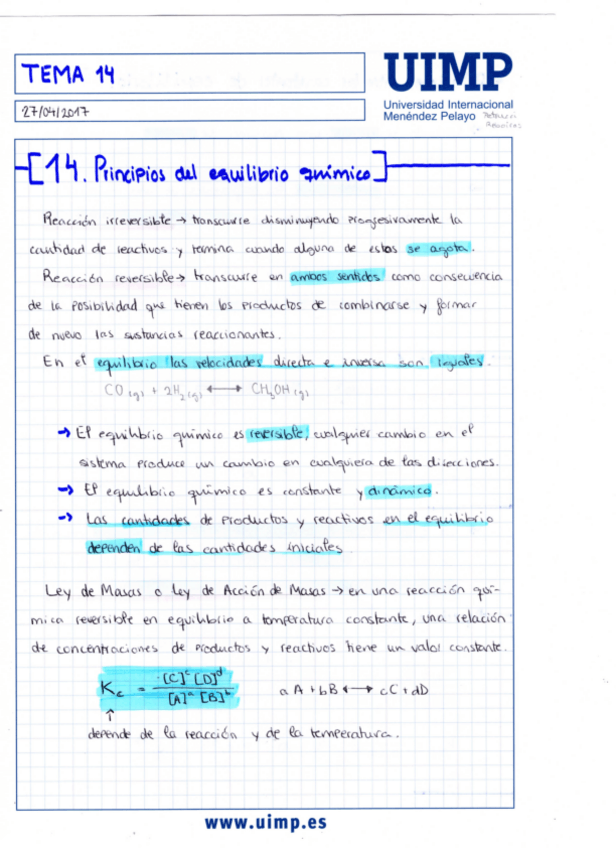 TEMA 14
UIMP
27/04/2017
Universidad Internacional
Menéndez Pelayo
[14. Principios del equilibrio químico]
Reacción irreversible → transcurre disminuyendo progresivamente la
cantidad de reactivos y termina cuando alguna de estas se agota.
Reacción reversible → transcurre en ambos sentidos como consecuencia
de la posibilidad que tienen los productos de combinarse y formar
de nuevo las sustancias reaccionantes.
En el equilibrio las velocidades directa e inversa son iguales.
CO (g) + 2H₂ (g) ⟷ CH₃OH (g)
→ El equilibrio químico es reversible, cualquier cambio en el
sistema produce un cambio en cualquiera de las direcciones.
→ El equilibrio químico es constante y dinámico.
→ Las cantidades de productos y reactivos en el equilibrio
dependen de las cantidades iniciales.
Ley de Masas o Ley de Acción de Masas → en una reacción quí-
mica reversible en equilibrio a temperatura constante, una relación
de concentraciones de productos y reactivos tiene un valor constante.
Kc = [C]ᶜ [D]ᵈ / [A]ᵃ [B]ᵇ aA + bB ⟷ cC + dD
↑
depende de la reacción y de la temperatura.
www.uimp.es